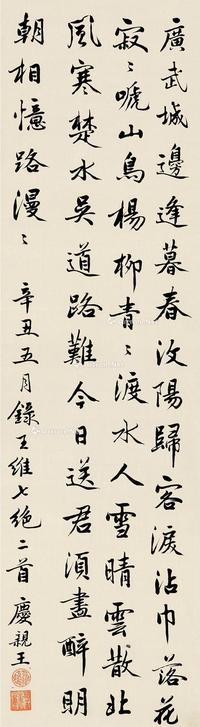 廣武城邊逢暮春汶陽歸客淚沾巾落花
寂〻啼山鳥楊柳青〻渡水人雪晴雲散北
風寒楚水吳山道路難今日送君須盡醉明
朝相憶路漫〻 辛丑五月錄王維七絕二首 慶親王